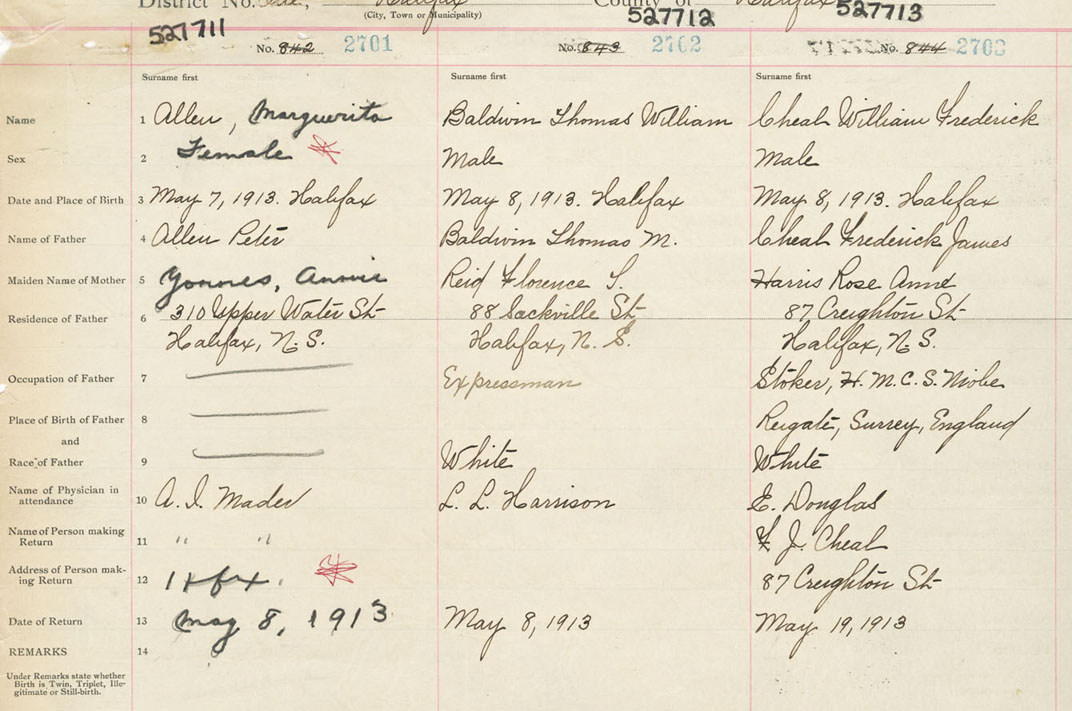 District No. Halifax County of Halifax
(City, Town or Municipality)
527711 527712 527713
No. 842 2701 No. 843 2702 No. 844 2703
Surname first Surname first Surname first
Name 1 Allen, Marguerita Baldwin Thomas William Cheal William Frederick
Sex 2 Female Male Male
Date and Place of Birth 3 May 7, 1913. Halifax May 8, 1913. Halifax May 8, 1913. Halifax
Name of Father 4 Allen Peter Baldwin Thomas M. Cheal Frederick James
Maiden Name of Mother 5 Annie Reid Florence S. Harris Rose Anne
Residence of Father 6 310 Upper Water St 88 Sackville St 87 Creighton St
Halifax, N.S. Halifax, N.S. Halifax, N.S.
Occupation of Father 7 Expressman Stoker, H.M.C.S. Niobe
Place of Birth of Father 8 Reigate, Surrey, England
and
Race of Father 9 White White
Name of Physician in
attendance 10 A. I. Mader L. L. Harrison E. Douglas
Name of Person making
Return 11 " " F J. Cheal
Address of Person mak-
ing Return 12 Hfx. 87 Creighton St
Date of Return 13 May 8, 1913 May 8, 1913 May 19, 1913
REMARKS 14
Under Remarks state whether
Birth is Twin, Triplet, Ille-
gitimate or Still-birth.